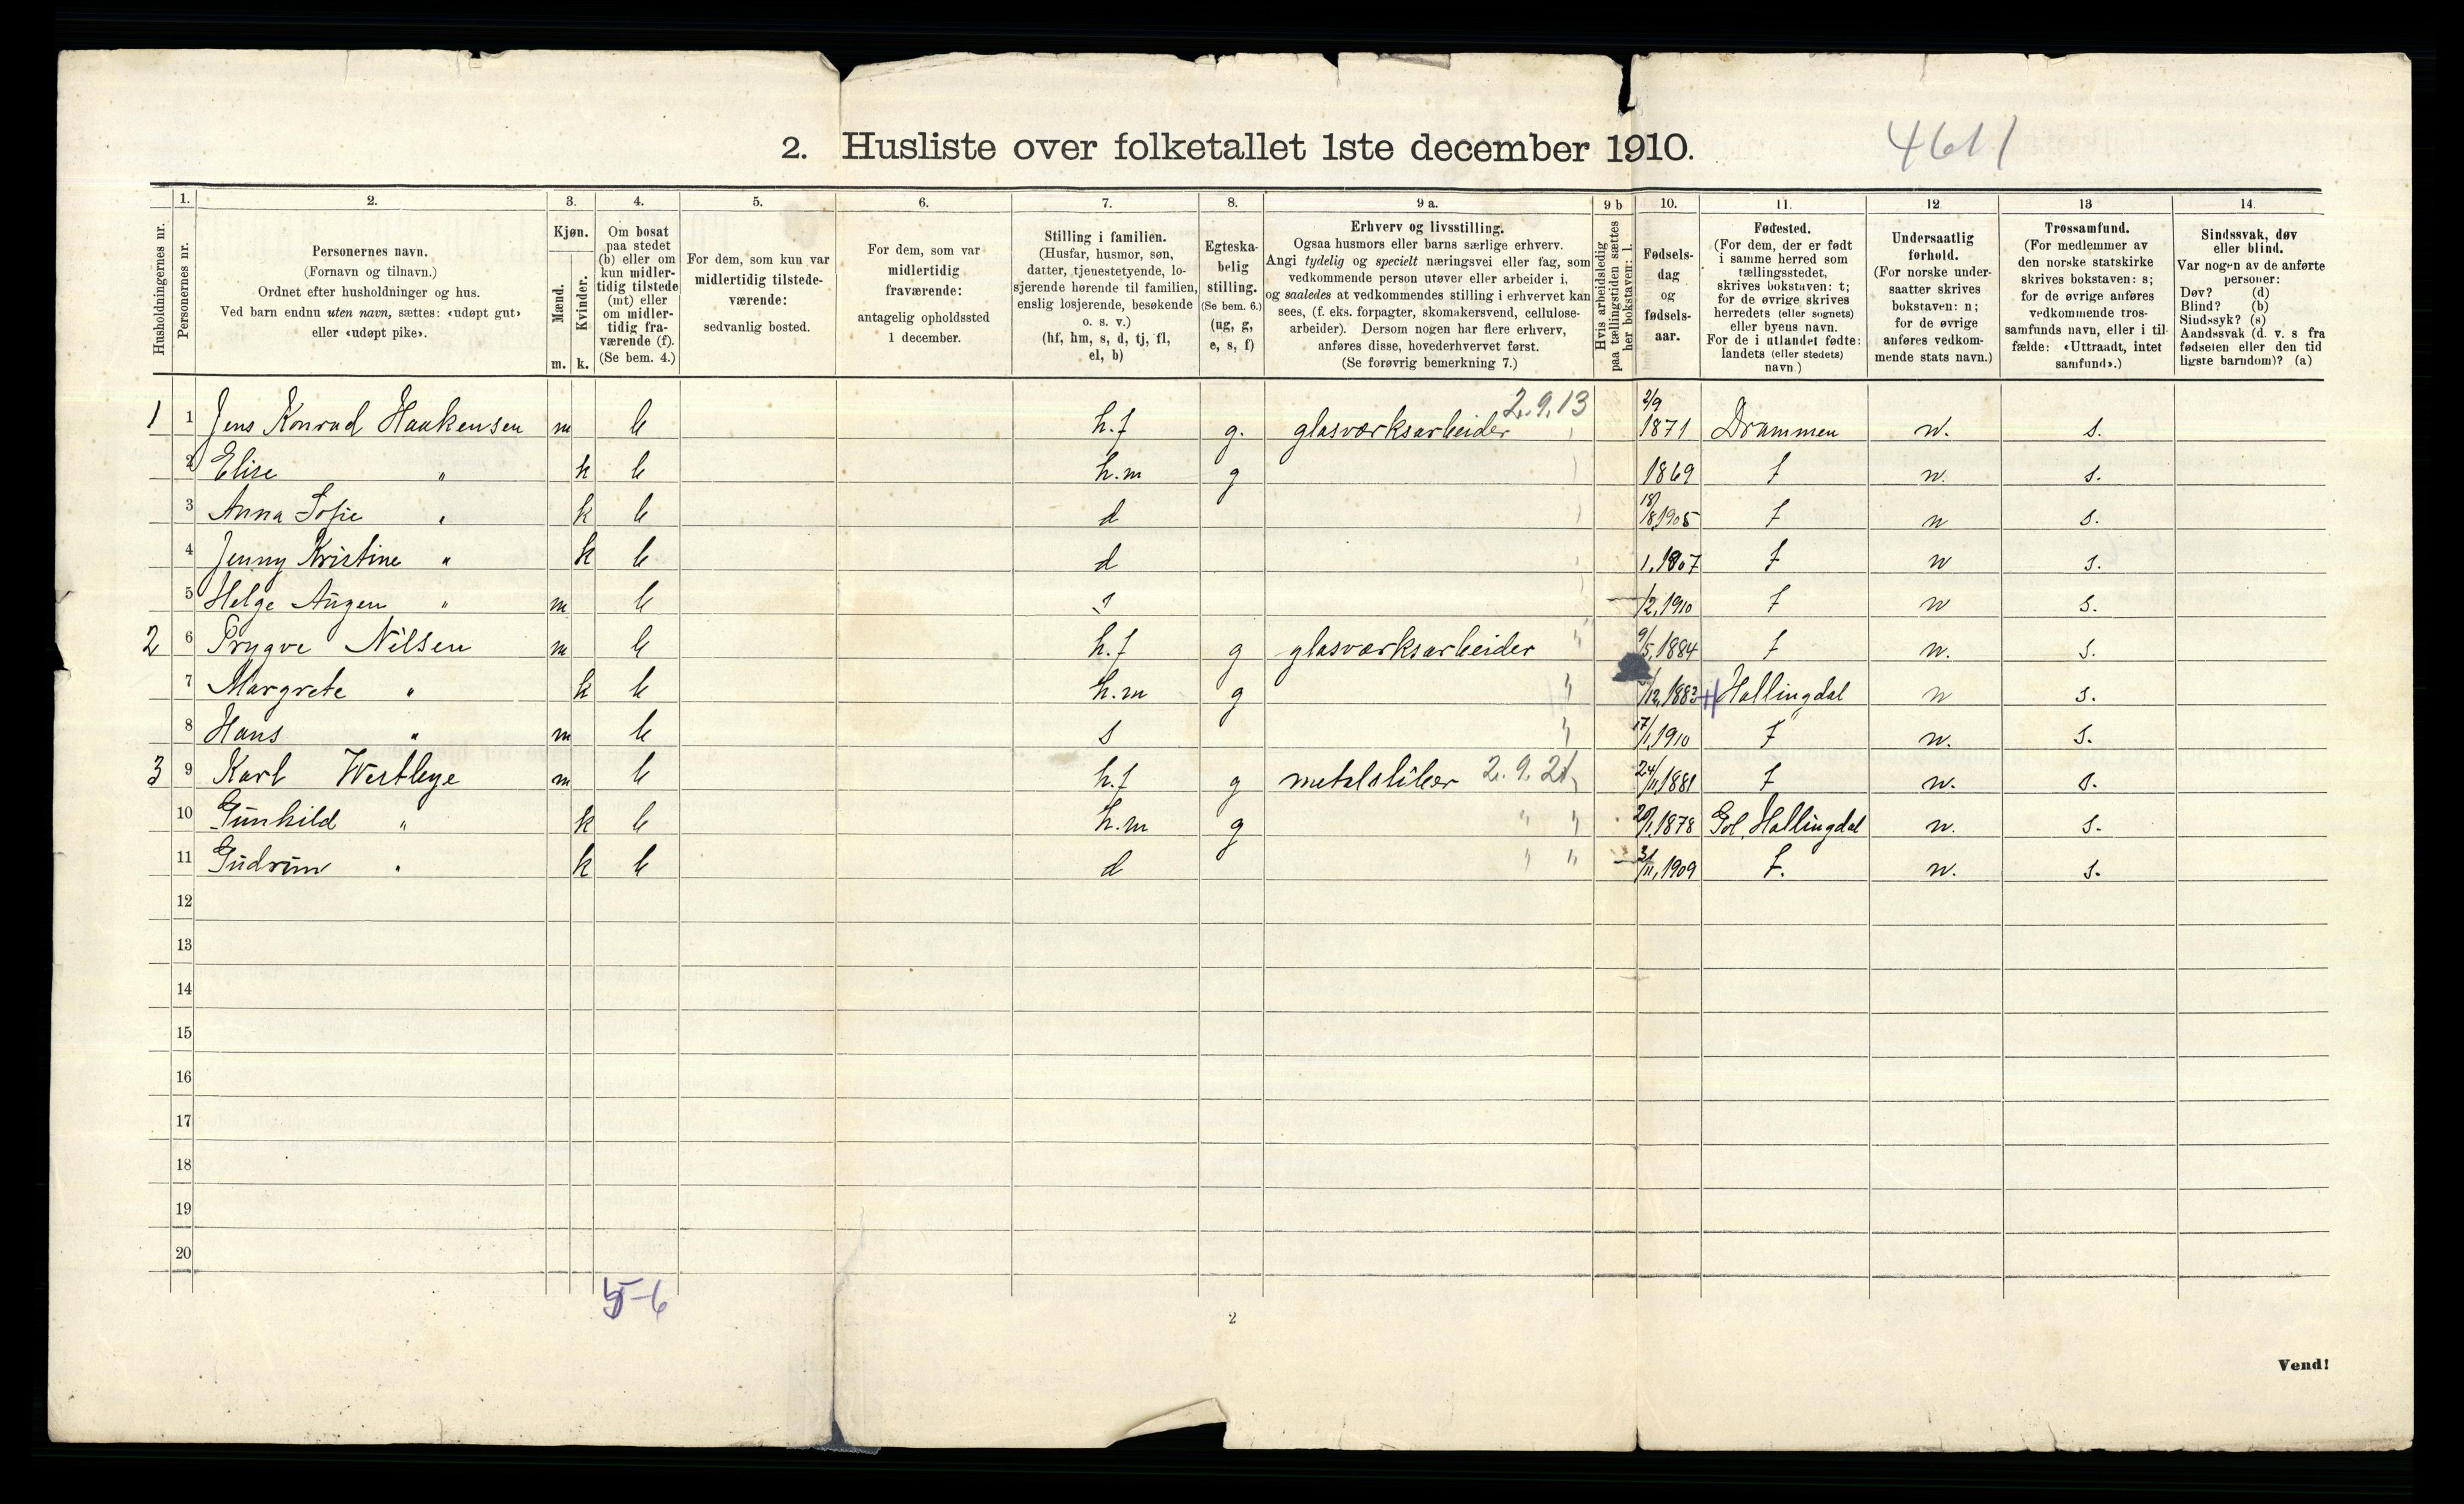 2. Husliste over folketallet 1ste december 1910.
4611
Husholdningernes nr.
1.
Personernes nr.
2.
Personernes navn.
(Fornavn og tilnavn.)
Ordnet efter husholdninger og hus.
Ved barn endnu uten navn, sættes: «udøpt gut»
eller «udøpt pike».
3.
Kjøn.
Mænd.
m.
Kvinder.
k.
4.
Om bosat
paa stedet
(b) eller om
kun midler-
tidig tilstede
(mt) eller
om midler-
tidig fra-
værende (f).
(Se bem. 4.)
5.
For dem, som kun var
midlertidig tilstede-
værende:
sedvanlig bosted.
6.
For dem, som var
midlertidig
fraværende:
antagelig opholdssted
1 december.
7.
Stilling i familien.
(Husfar, husmor, søn,
datter, tjenestetyende, lo-
sjerende hørende til familien,
enslig losjerende, besøkende
o. s. v.)
(hf, hm, s, d, tj, fl,
el, b)
8.
Egteska-
belig
stilling.
(Se bem. 6.)
(ug, g,
e, s, f)
9 a.
Erhverv og livsstilling.
Ogsaa husmors eller barns særlige erhverv.
Angi tydelig og specielt næringsvei eller fag, som
vedkommende person utøver eller arbeider i,
og saaledes at vedkommendes stilling i erhvervet kan
sees, (f. eks. forpagter, skomakersvend, cellulose-
arbeider). Dersom nogen har flere erhverv,
anføres disse, hovederhvervet først.
(Se forøvrig bemerkning 7.)
9 b
Hvis arbeidsledig
paa tællingstiden sættes
her bokstaven: l.
10.
Fødsels-
dag
og
fødsels-
aar.
11.
Fødested.
(For dem, der er født
i samme herred som
tællingsstedet,
skrives bokstaven: t;
for de øvrige skrives
herredets (eller sognets)
eller byens navn.
For de i utlandet fødte:
landets (eller stedets)
navn.)
12.
Undersaatlig
forhold.
(For norske under-
saatter skrives
bokstaven: n;
for de øvrige
anføres vedkom-
mende stats navn.)
13
Trossamfund.
(For medlemmer av
den norske statskirke
skrives bokstaven: s;
for de øvrige anføres
vedkommende tros-
samfunds navn, eller i til-
fælde: «Uttraadt, intet
samfund».)
14.
Sindssvak, døv
eller blind.
Var nogen av de anførte
personer:
Døv? (d)
Blind? (b)
Sindssyk? (s)
Aandssvak (d. v. s. fra
fødselen eller den tid
ligste barndom)? (a)
1 1 Jens Konrad Haakensen m b h.f g. glasværksarbeider 2.9.13 2/9 1871 Drammen n. s.
2 Elise " k b h.m g 1869 t n. s.
3 Anna Sofie " k b d 18/8 1905 t n s.
4 Jenny Kristine " k b d 1907 t n s.
5 Helge Augen " m b s /2, 1910 t n s.
2 6 Trygve Nilsen m b h.f g glasværksarbeider " 9/5, 1884 t n. s.
7 Margrete " k b h.m g " /12, 1883 Hallingdal n s.
8 Hans " m b s " 17/1, 1910 t n. s.
3 9 Karl Westbye m b h.f g metalsliber 2.9.21 24/11, 1881 t n. s.
10 Gunhild " k b h.m g " " 20/1, 1878 Gol, Hallingdal n. s.
11 Gudrun " k b d " " /11, 1909 t. n. s.
12
13
14
15
16
17
18
19
20
5-6
2
Vend!